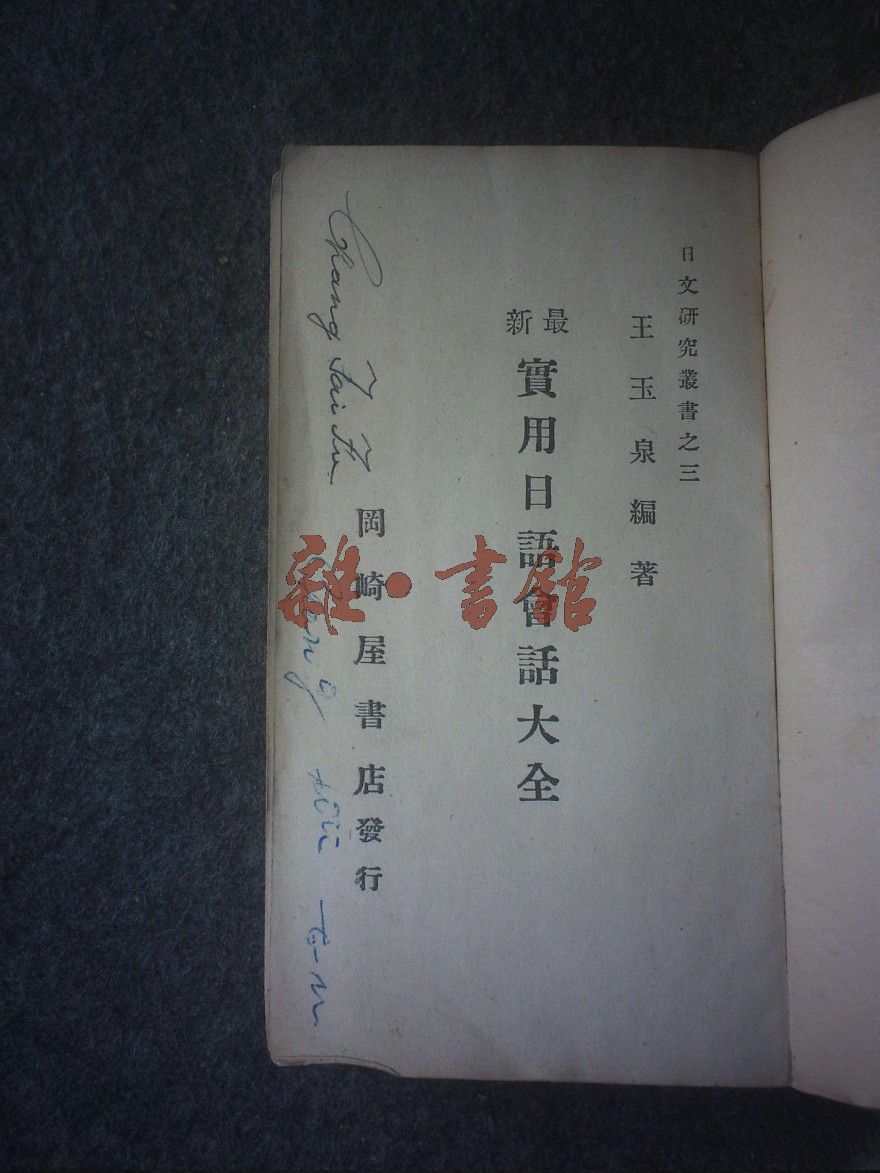 日文研究叢書之三
王玉泉編著
最新
實用日語會話大全
岡崎屋書店發行
Chang
雜·書館